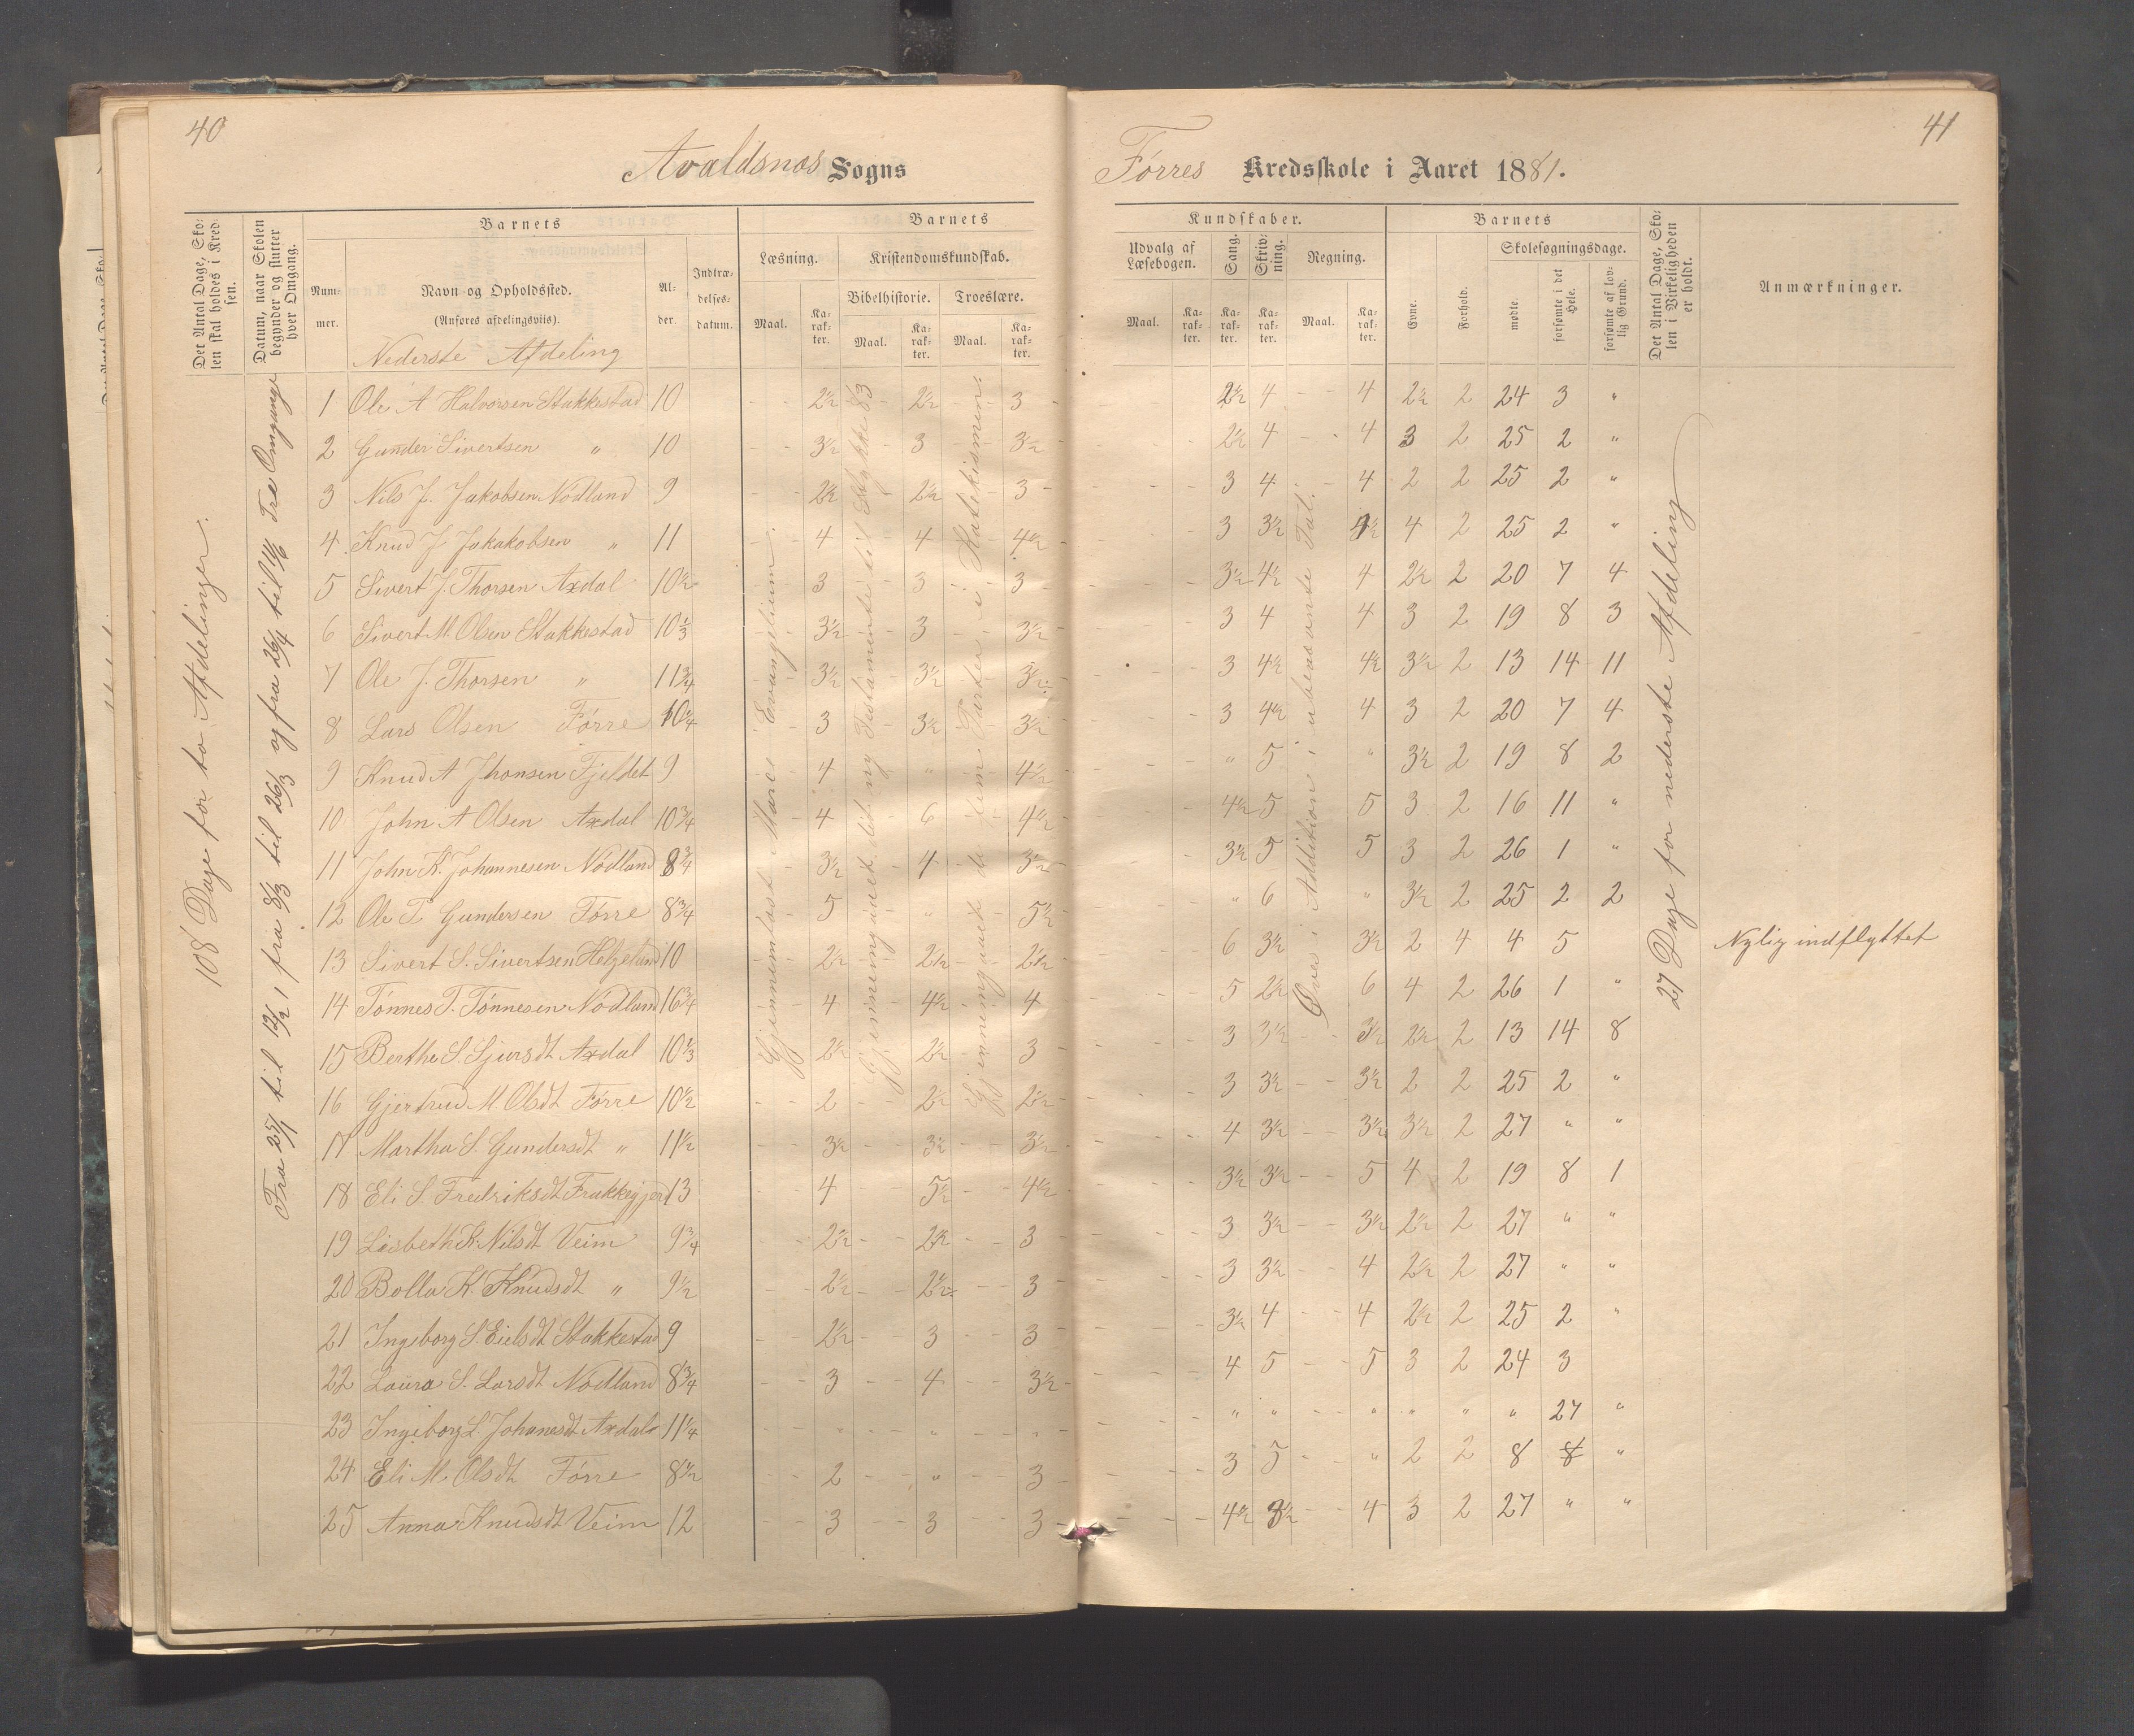 40
Avaldsnes Sogns
Det Antal Dage, Skolen skal holdes i Kredsen.
Datum, naar Skolen begynder og slutter hver Omgang.
Barnets
Nummer.
Navn og Opholdssted.
(Anføres afdelingsviis).
Alder.
Indtrædelsesdatum.
Barnets
Læsning.
Kristendomskundskab.
Bibelhistorie.
Troeslære.
Maal.
Karakter.
Maal.
Karakter.
Maal.
Karakter.
Nederste Afdeling
108 Dage for to Afdelinger.
Fra 25/1 til 12/2, fra 8/3 til 26/3 og fra 26/4 til 14/6 Tre Omgange
Gjennemlæst Marci Evangelium.
Gjennemgaaet det ny Testamente til Stykke 83
Gjennemgaaet de fem Parter i Katekismen.
1 Ole A Halvorsen Stakkestad 10 2½ 2½ 3
2 Gunder Sivertsen " 10 3½ 3 3½
3 Nils J. Jakobsen Nodland 9 2½ 2½ 3
4 Knud J Jakakobsen " 11 4 4 4½
5 Sivert J. Thorsen Axdal 10½ 3 3 3
6 Sivert M. Olsen Stakkestad 10⅓ 3½ 3 3½
7 Ole J. Thorsen " 11¾ 3½ 3½ 3½
8 Lars Olsen Førre 10¼ 3 3½ 3½
9 Knud A Jhonsen Fjeldet 9 4 " 4½
10 John A Olsen Axdal 10¾ 4 6 4½
11 John K. Johannesen Nodland 8¾ 3½ 4 3½
12 Ole T Gundersen Førre 8¾ 5 " 5½
13 Sivert S. Sivertsen Helgeland 10 2½ 2½ 2½
14 Tönnes T. Tönnesen Nodland 16¾ 4 4½ 4
15 Berthe S. Sjursdt Axdal 10⅓ 2½ 2½ 3
16 Gjertrud M. Olsdt Førre 10½ 2 2½ 2½
17 Martha S. Gundersdt " 11½ 3½ 3½ 3½
18 Eli S. Fredriksdt Frakkegjerd 13 4 5½ 4½
19 Lisbeth K. Nilsdt Veim 9¾ 2½ 2½ 3
20 Bolla K. Knudsdt " 9½ 2½ 2½ 3
21 Ingeborg S Eielsdt Stakkestad 9 2½ 3 3
22 Laura S. Larsdt Nodland 8¾ 3 4 3½
23 Ingeborg L. Johanesdt Axdal 11¼ " " "
24 Eli M. Olsdt Førre 8½ 2 " 3
25 Anna Knudsdt Veim 12 3 3 3
41
Førres Kredsskole i Aaret 1881.
Kundskaber.
Udvalg af Læsebogen.
Sang.
Skrivning.
Regning.
Maal.
Karakter.
Karakter.
Karakter.
Maal.
Karakter.
Barnets
Evne.
Forhold.
Skolesøgningsdage.
mødte.
forsømte i det Hele.
forsømte af lovlig Grund.
Det Antal Dage, Skolen i Virkeligheden er holdt.
Anmærkninger.
Øves i Addition i ubenævnte Tal.
27 Dage for nederste Afdeling
2½ 4 4 2½ 2 24 3 "
2½ 4 4 3 2 25 2 "
3 4 4 2 2 25 2 "
3 3½ 4½ 4 2 25 2 "
3½ 4½ 4 2½ 2 20 7 4
3 4 4 3 2 19 8 3
3 4½ 4½ 3½ 2 13 14 11
3 4½ 4 3 2 20 7 4
" 5 " 3½ 2 19 8 2
4½ 5 5 3 2 16 11 "
3½ 5 5 3 2 26 1 "
" 6 " 3½ 2 25 2 2
6 3½ 3½ 2 4 4 5 Nylig indflyttet
5 2½ 6 4 2 26 1 "
3 3½ 3½ 2½ 2 13 14 8
3 3½ 3½ 2 2 25 2 "
4 3½ 3½ 3½ 2 27 " "
3½ 3½ 5 4 2 19 8 1
3 3½ 3½ 2½ 2 27 " "
3 3½ 4 2½ 2 27 " "
3½ 4 4 2½ 2 25 2 "
4 5 5 3 2 24 3
" " " " " " 27 "
3 5 " 2 2 8 8 "
4½ 3½ 4 3 2 27 " "